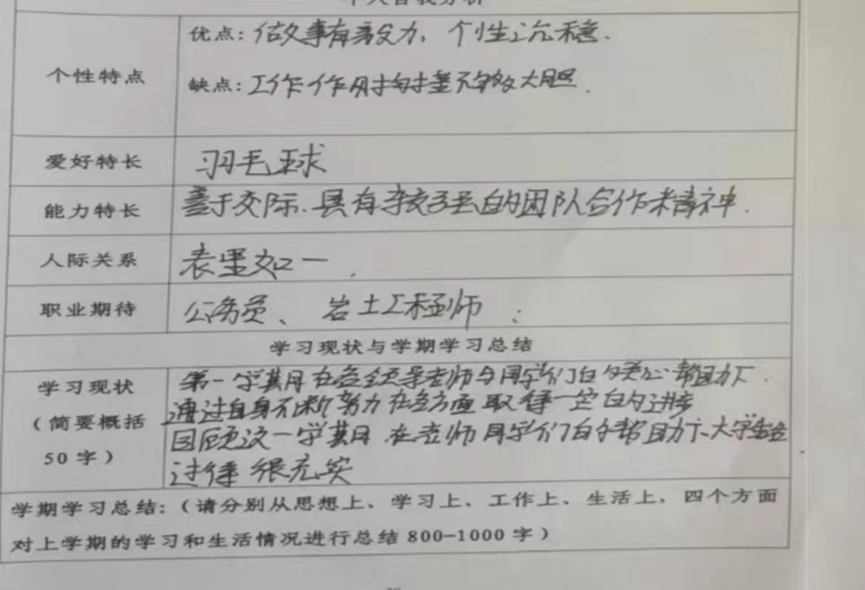 个人自我分析
优点：做事有毅力，个性沉稳.
个性特点
缺点：工作作用技拙不够大胆.
爱好特长 羽毛球
能力特长 善于交际.具有较强的团队合作精神.
人际关系 表里如一.
职业期待 公务员、岩土工程师；
学习现状与学期学习总结
学习现状 第一学期在各领导老师与同学们的关心帮助下.
（简要概括 通过自身不断努力在各方面取得一定的进步
50字） 回顾这一学期在老师同学们的帮助下大学生活
过得很充实
学期学习总结：（请分别从思想上、学习上、工作上、生活上，四个方面
对上学期的学习和生活情况进行总结800-1000字）